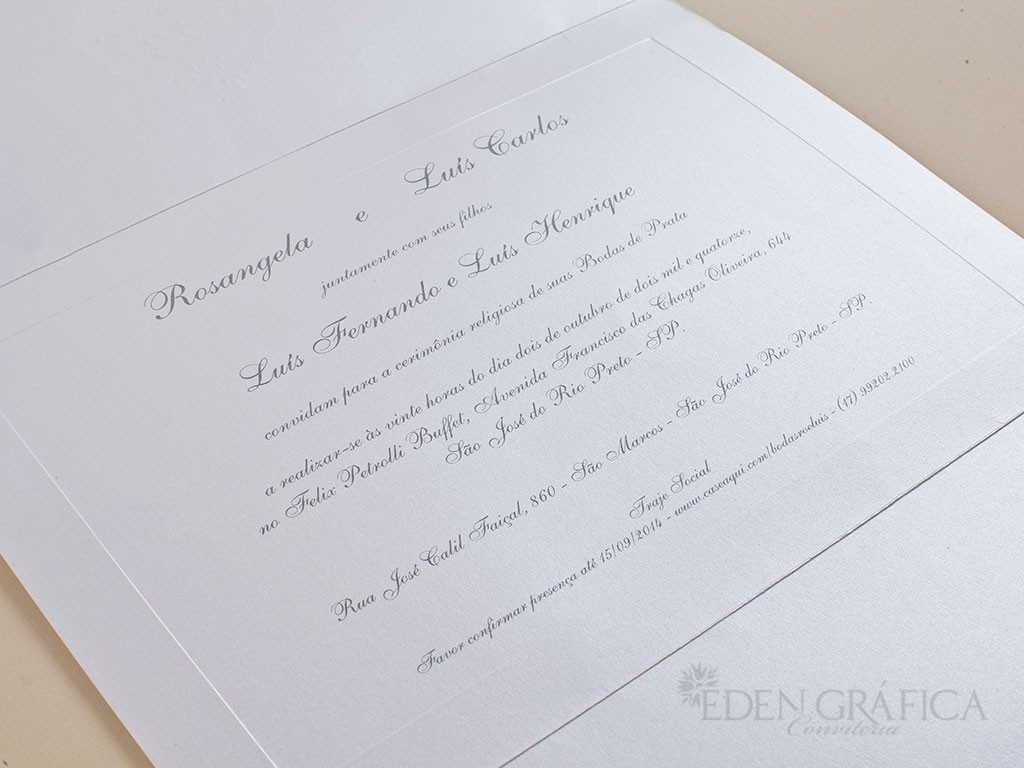 Rosangela e Luís Carlos
juntamente com seus filhos
Luís Fernando e Luís Henrique
convidam para a cerimônia religiosa de suas Bodas de Prata
a realizar-se às vinte horas do dia dois de outubro de dois mil e quatorze,
no Felix Petrolli Buffet, Avenida Francisco das Chagas Oliveira, 644
São José do Rio Preto - SP.
Rua José Calil Faiçal, 860 - São Marcos - São José do Rio Preto - SP.
Traje Social
Favor confirmar presença até 15/09/2014 - www.caseaqui.com/bodasroeluis - (17) 99202.2100
EDEN GRÁFICA
Conviteria